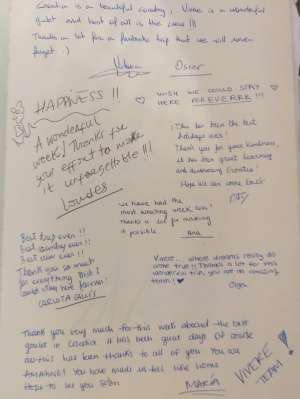 Croatia is a beautiful country, Vivere is a wonderful
and best of all is the crew !!!
Thanks a lot for a fantastic trip that we will never
forget :)
Oscar
HAPPINESS !!
A wonderful
week! Thanks for
your effort to make
it unforgettable !!!
Lourdes
WISH WE COULD STAY
HERE FOREVERRR !!!
This has been the best
holidays ever!
Thank you for your kindness,
it has been great learning
and discovering Croatia!
Hope we can come back
we have had the
most amazing week ever!
Thanks a lot for making
it possible
Ana
Best trip ever !!
Best country ever !!
Best crew ever !!
Thank you so much
for everything. Wish I
could stay here forever!
CARLOTA
Vivere... where dreams really do
come true!! Thanks a lot for this
wonderful trip, you are an amazing
team!
Olga
Thank you very much for this week aboard the best
in Croatia. It has been great days. Of course
this has been thanks to all of you. You are
AMAZING! You have made us feel like home.
Hope to see you soon
MARÍA
VIVERE
TEAM!